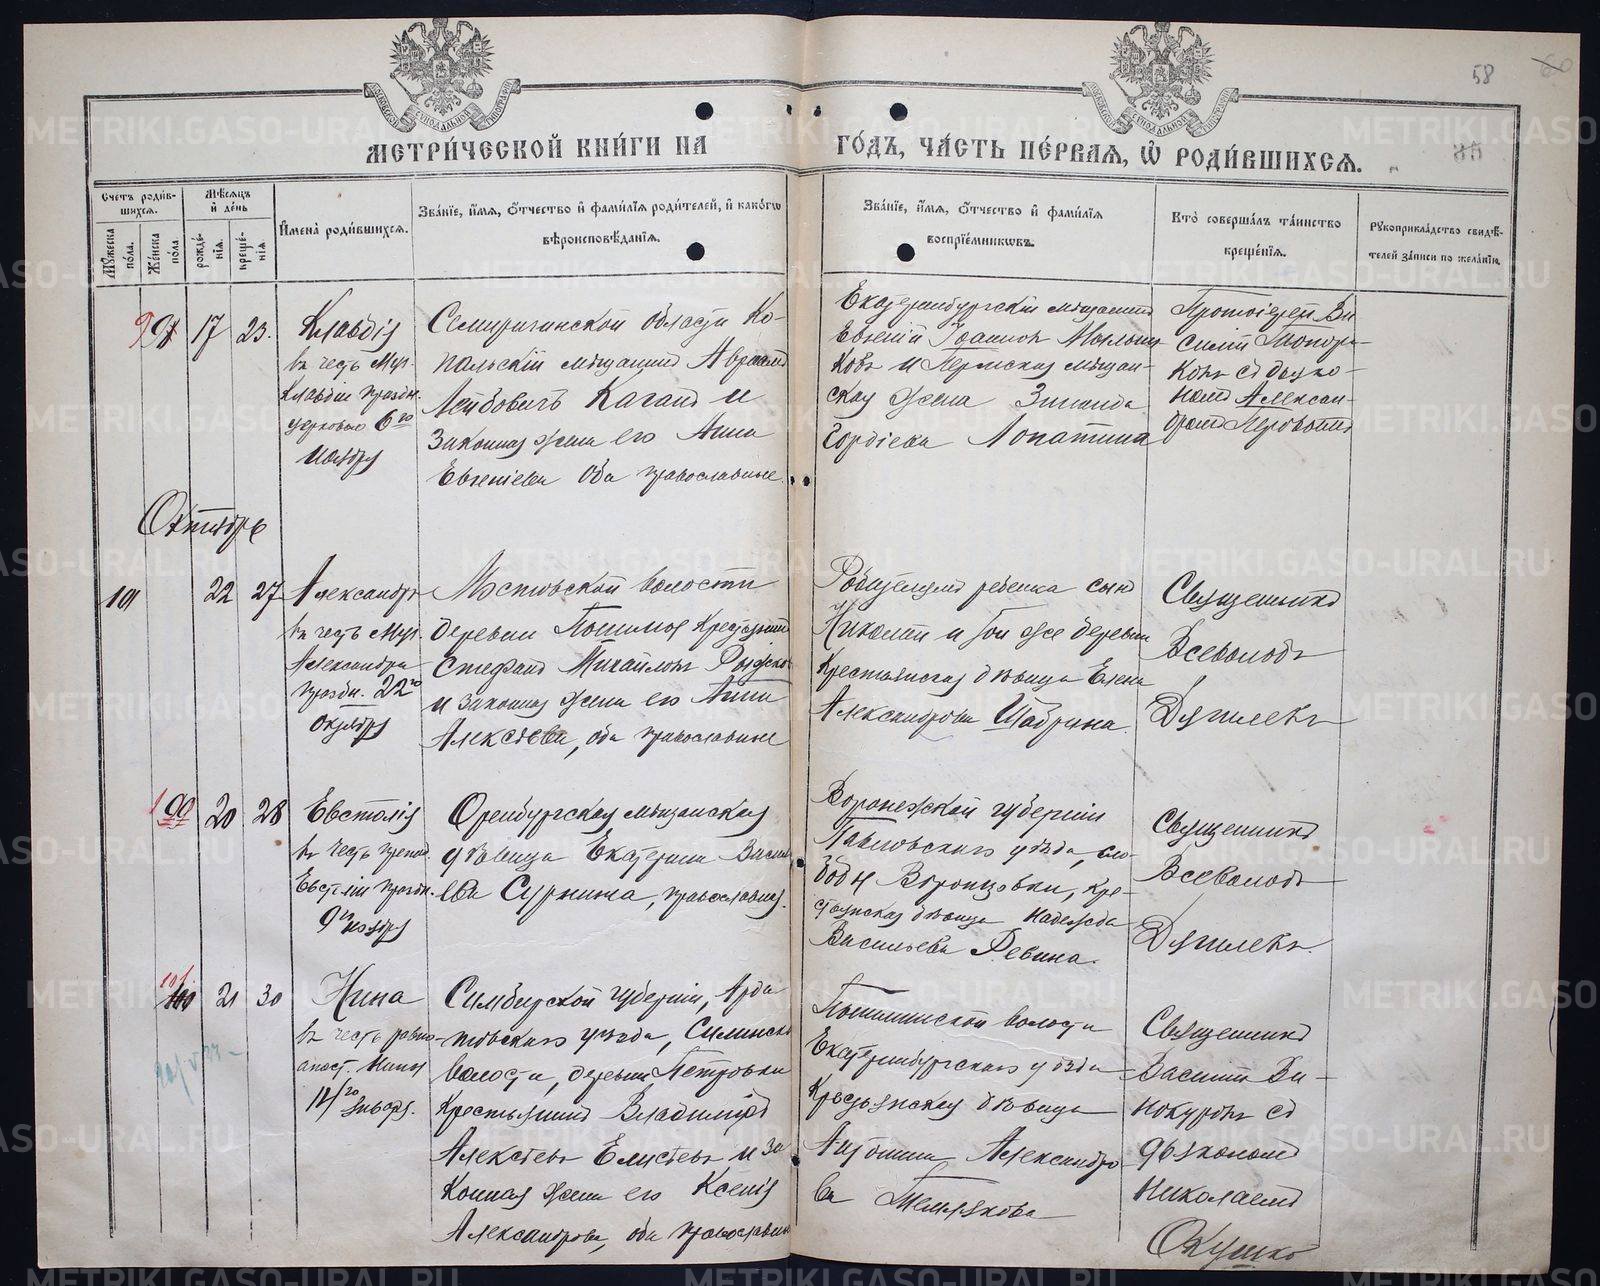 58
МЕТРИ́ЧЕСКОЙ КНИ́ГИ НА ГО́ДЪ, ЧА́СТЬ ПЕ́РВАЯ, Ѿ РОДИ́ВШИХСЯ.
Счетъ роди́в-
шихся.
Мꙋжеска
по́ла.
Же́нска
по́ла.
Мѣ́сяцъ
и де́нь
рожде́-
нїя.
креще́-
нїя
И҆мена̀ роди́вшихся.
Зва́нїе, и҆́мя, ѻ҆́тчество и҆ фами́лїя роди́телей, и҆ како́гѡ
вѣроисповѣ́данїя.
Зва́нїе, и҆́мя, ѻ҆́тчество и҆ фами́лїя
воспрїе́мниковъ.
Кто̀ соверша́лъ та́инство
креще́нїя.
Рꙋкоприкла́дство свидѣ́-
телей за́писи по жела́нїю.
17 23.
Клавдія
въ честь муч.
Клавдіи праздн.
церковью 6го
ноября
Семиреченской области Ко-
пальскій мѣщанинъ Авраамъ
Лейбовичъ Каганъ и
законная жена его Анна
Евгеніева оба православные.
Екатеринбургскій мѣщанинъ
Евгеній Іоанновъ
и Пермская мѣщан-
ская жена Зинаида
Гордіева Лопатина
Протоіерей Ва-
силій Топор-
ковъ съ діако-
номъ Алексан-
дромъ
Октябрь
101
22 27
Александръ
въ честь муч.
Александра
праздн. 22го
октября
Мостовской волости
деревни Пышмы крестьянинъ
Стефанъ Михайловъ
и законная жена его Анна
Алексѣева, оба православные
Родителей ребенка сынъ
Николай и той же деревни
крестьянская дѣвица Елена
Александрова Шабрина.
Священникъ
Всеволодъ
Дягилевъ
100
20 28
Евстолія
въ честь препод.
Евстоліи праздн.
9го ноября
Оренбургская мѣщанская
дѣвица Екатерина Василь
ева Сурнина, православная.
Воронежской губерніи
Павловскаго уѣзда, сло-
боды Воронцовки, кре-
стьянская дѣвица Надежда
Васильева Ревина.
Священникъ
Всеволодъ
Дягилевъ.
101
21 30
Нина
въ честь равно-
апост. Нины
14/20 января.
Симбирской губерніи, Арда
товскаго уѣзда, Силинской
волости, деревни Петровки
крестьянинъ Владиміръ
Алексѣевъ Елисѣевъ и за
конная жена его Ксенія
Александрова, оба православные
Пышминской волости
Екатеринбургскаго уѣзда
крестьянская дѣвица
Антонина Александро
ва
Священникъ
Василій Ви-
нокуровъ съ
діакономъ
Николаемъ
METRIKI.GASO-URAL.RU